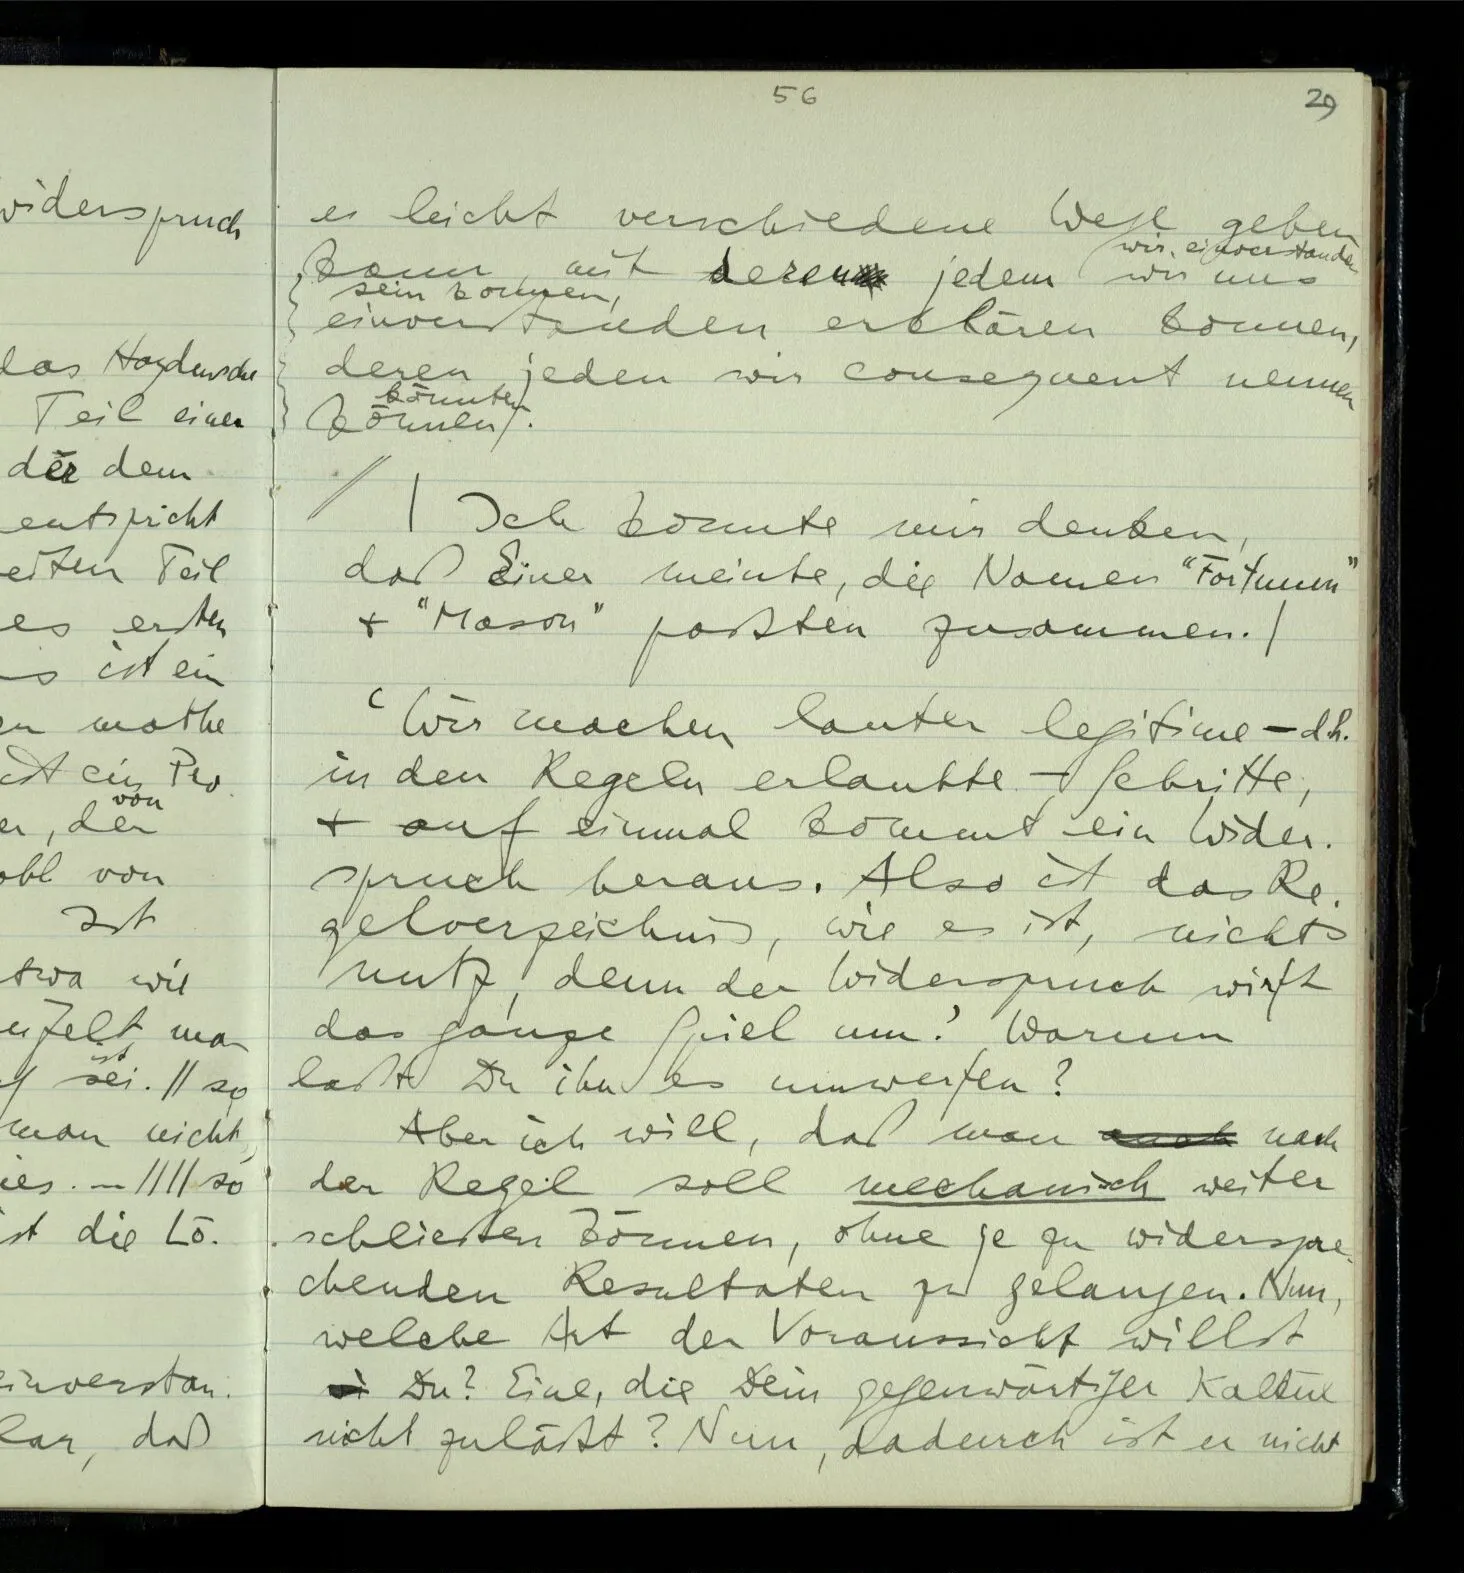 56
29
es leicht verschiedene Wege geben
wir einverstanden
kann, mit deren jedem wir uns
sein können,
einverstanden erklären können,
deren jeden wir consequent nennen
könnten
können.
// | Ich könnte mir denken,
daß Einer meinte, die Namen "Fortnum"
+ "Mason" paßten zusammen. |
‘Wir machen lauter legitime – d.h.
in den Regeln erlaubte – Schritte,
+ auf einmal kommt ein Wider-
spruch heraus. Also ist das Re-
gelverzeichnis, wie es ist, nichts
nutz, denn der Widerspruch wirft
das ganze Spiel um.’ Warum
laßt Du ihn es umwerfen?
Aber ich will, daß man auch nach
der Regel soll mechanisch weiter
schließen können, ohne je zu widerspre-
chenden Resultaten zu gelangen. Nun,
welche Art der Voraussicht willst
wi Du? Eine, die Dein gegenwärtiger Kalkül
nicht zuläßt? Nun, dadurch ist er nicht
widerspruch
das Haydnsche
Teil einer
der dem
entspricht
eiten Teil
es ersten
ist ein
mathe
ist ein Pro
von
er, der
ohl von
Ist
twa wie
ist
sei. // so
man nicht,
ies. – //// so
ist die Lö-
einverstan-
lar, daß